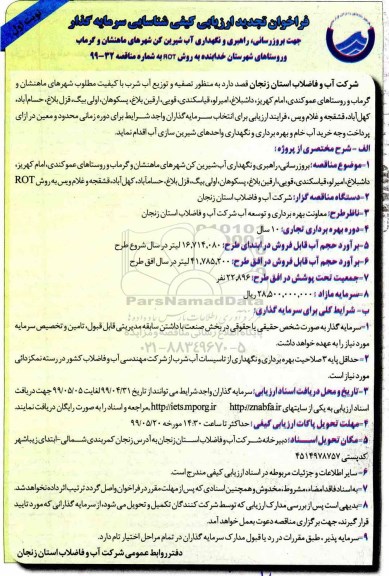 نوبت اول
فراخوان تجدید ارزیابی کیفی شناسایی سرمایه گذار
جهت بروزرسانی، راهبری و نگهداری آب شیرین کن شهرهای ماهنشان و گرماب
وروستاهای شهرستان خدابنده به روش ROT به شماره مناقصه ۳۲-۹۹
شرکت آب و فاضلاب استان زنجان قصد دارد به منظور تصفیه و توزیع آب شرب با کیفیت مطلوب شهرهای ماهنشان و
گرماب و روستاهای عموکندی، امام کهریز، داشبلاغ، امیرلو، قیاسکندی، قویی، ارقین بلاغ، پسکوهان، اولی بیگ، قزل بلاغ، حسام آباد،
کهل آباد، قشقجه و غلام ویس، فرایند ارزیابی برای انتخاب سرمایه گذاران واجد شرایط برای دوره زمانی محدود و معین در ازای
پرداخت وجه خرید آب خام و بهره برداری و نگهداری واحدهای شیرین سازی آب اقدام نماید.
الف - شرح مختصری از پروژه:
۱-موضوع مناقصه: بروزرسانی، راهبری و نگهداری آب شیرین کن شهرهای ماهنشان و گرماب و روستاهای عموکندی، امام کهریز،
داشبلاغ، امیرلو، قیاسکندی، قویی، ارقین بلاغ، پسکوهان، اولی بیگ، قزل بلاغ، حسام آباد، کهل آباد، قشقجه و غلام ویس به روش ROT
۲-دستگاه مناقصه گزار: شرکت آب و فاضلاب استان زنجان
۳-ناظرطرح: معاونت بهره برداری و توسعه آب شرکت آب و فاضلاب استان زنجان
۴-دوره بهره برداری تجاری: ۱۰ سال
۵-برآورد حجم آب قابل فروش در ابتدای طرح: ۱۶،۷۱۴،۰۸۰ لیتر در سال شروع طرح
۶-برآورد حجم آب قابل فروش در افق طرح: ۴۱،۷۸۵،۲۰۰ لیتر در سال افق طرح
۷-جمعیت تحت پوشش در افق طرح: ۲۲،۸۹۶ نفر
۸-سرمایه مازاد: ۲۸،۵۰۰،۰۰۰،۰۰۰ ریال
ب- شرایط کلی برای سرمایه گذاری:
۱-سرمایه گذار به صورت شخص حقیقی یا حقوقی در بخش صنعت با داشتن سابقه مدیریتی قابل قبول، تامین و تخصیص سرمایه
مورد نیاز را به عهده خواهد داشت.
۲-حداقل پایه ۳ صلاحیت بهره برداری و نگهداری از تاسیسات آب شرب از شرکت مهندسی آب و فاضلاب کشور در رسته نمکزدائی
مورد نیاز است.
۳-تاریخ و محل دریافت اسناد ارزیابی: سرمایه گذاران واجد شرایط می توانند از تاریخ ۹۹/۰۴/۳۱ لغایت ۹۹/۰۵/۰۵ جهت دریافت
اسناد ارزیابی به یکی از سایتهای http://znabfa.ir http://iets.mporg.ir مراجعه و اسناد را به صورت رایگان دریافت نمایند.
۴-مهلت تحویل پاکات ارزیابی کیفی: حداکثر تا ساعت ۱۴:۳۰ مورخه ۹۹/۰۵/۲۰
۵-مکان تحویل اسناد: دبیرخانه شرکت آب و فاضلاب استان زنجان به آدرس زنجان کمربندی شمالی-ابتدای زیباشهر
کدپستی ۴۵۱۴۹۷۸۷۵۷
۶-سایر اطلاعات و جزئیات مربوطه در اسناد ارزیابی کیفی مندرج است.
۷-به اسناد فاقد امضاء، مشروط، مخدوش و همچنین اسنادی که پس از مهلت مقرر در فراخوان واصل گردد ترتیب اثر داده نخواهد شد.
۸-بدیهی است پس از بررسی مدارک ارزیابی که توسط شرکت کنندگان تکمیل و تحویل می شود، از سرمایه گذارانی که مورد تایید
قرار گیرند، جهت برگزاری مناقصه دعوت بعمل خواهد آمد.
۹-سرمایه پذیر، طبق مقررات در رد یا قبول مدارک سرمایه گذاران در تمام مراحل اختیار تام دارد.
دفتر روابط عمومی شرکت آب و فاضلاب استان زنجان
ParsNamadData
۰۲۱-۸۸۳۴۹۶۷۰-۵